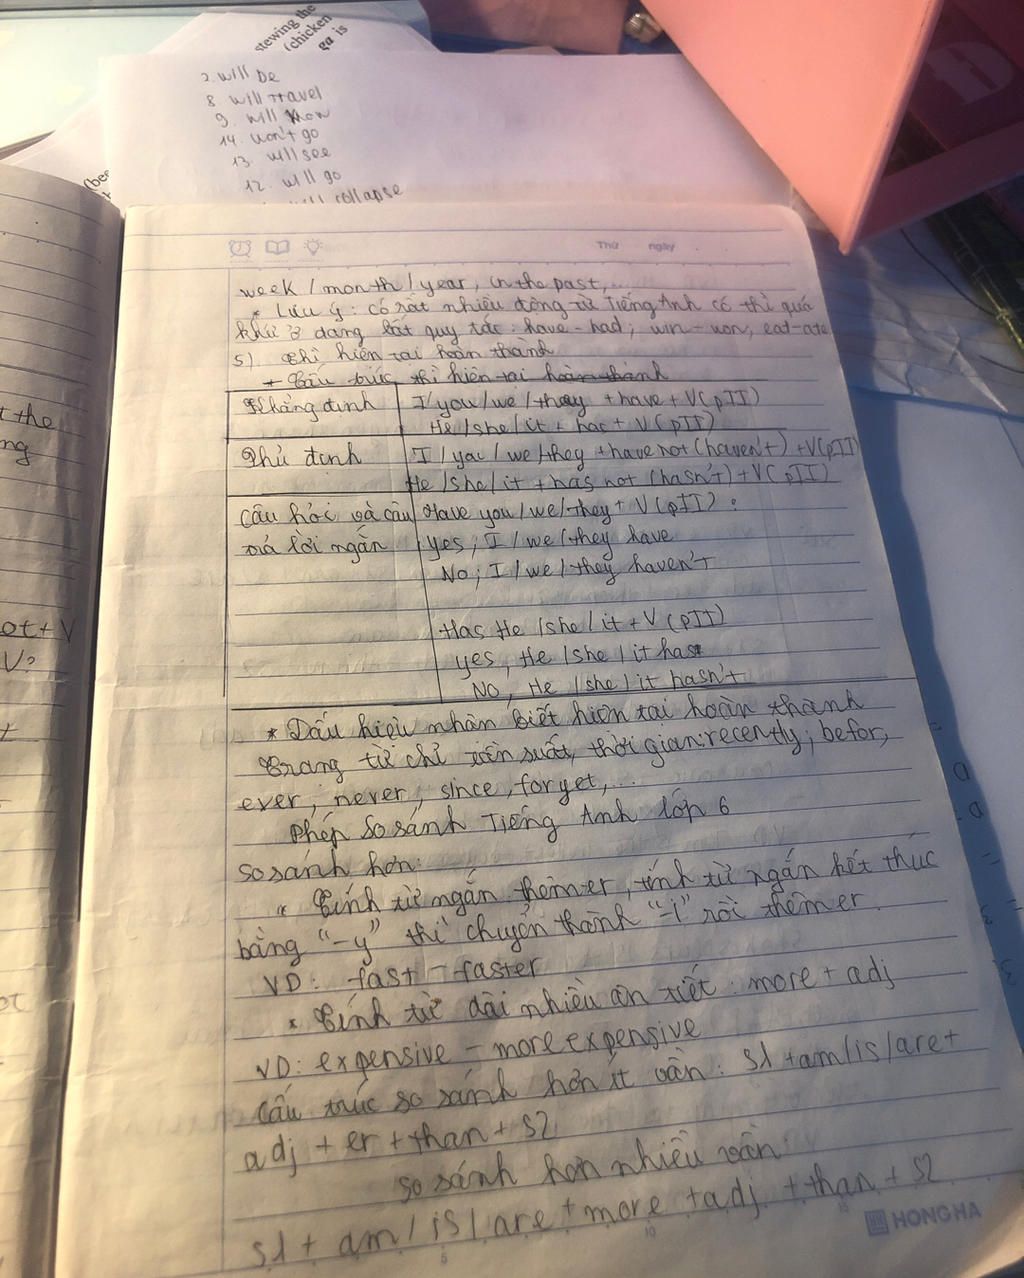 stewing the
(chicken
ga is
2. will be
8. will travel
9. will know
14. won't go
13. will see
12. will go
will collapse
(bee
Thứ ngày
week / month / year, in the past,...
* Lưu ý: có rất nhiều động từ Tiếng Anh có thì quá
khứ ở dạng bất quy tắc: have - had; win - won, eat - ate
5) thì hiện tại hoàn thành
* Cấu trúc thì hiện tại hoàn thành
Khẳng định I / you / we / they + have + V(pII)
He / she / it + has + V(pII)
Phủ định I / you / we / they + have not (haven't) + V(pII)
He / she / it + has not (hasn't) + V(pII)
Câu hỏi và câu Have you / we / they + V(pII)?
trả lời ngắn yes; I / we / they have
No; I / we / they haven't
Has He / she / it + V(pII)
yes, He / she / it has
No, He / she / it hasn't
* Dấu hiệu nhận biết hiện tại hoàn thành
Trang từ chỉ tần suất, thời gian: recently; befor,
ever, never, since, forget,...
Phép So sánh Tiếng Anh lớp 6
so sánh hơn:
* Tính từ ngắn thêm er, tính từ ngắn kết thúc
bằng "-y" thì chuyển thành "-i" rồi thêm er.
VD: fast - faster
* Tính từ dài nhiều âm tiết: more + adj
VD: expensive - more expensive
Cấu trúc so sánh hơn ít vần: S1 + am / is / are +
adj + er + than + S2
so sánh hơn nhiều vần:
S1 + am / is / are + more + adj + than + S2
HONG HA
t the
ng
ot + V
V?